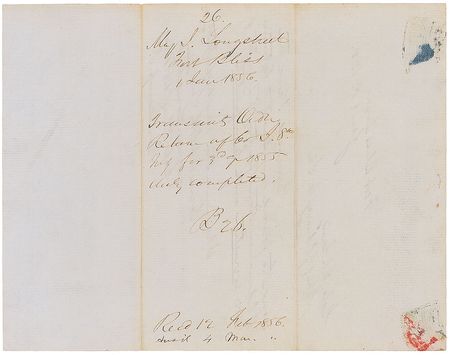 26.
Maj J. Longstreet
Fort Bliss
1 Jan 1856.
Transmits Ord
Return of Co I. 8th
Inf for 3d qr 1855
duly completed.
B 26.
Recd 12 Feb 1856.
4 Mar. "